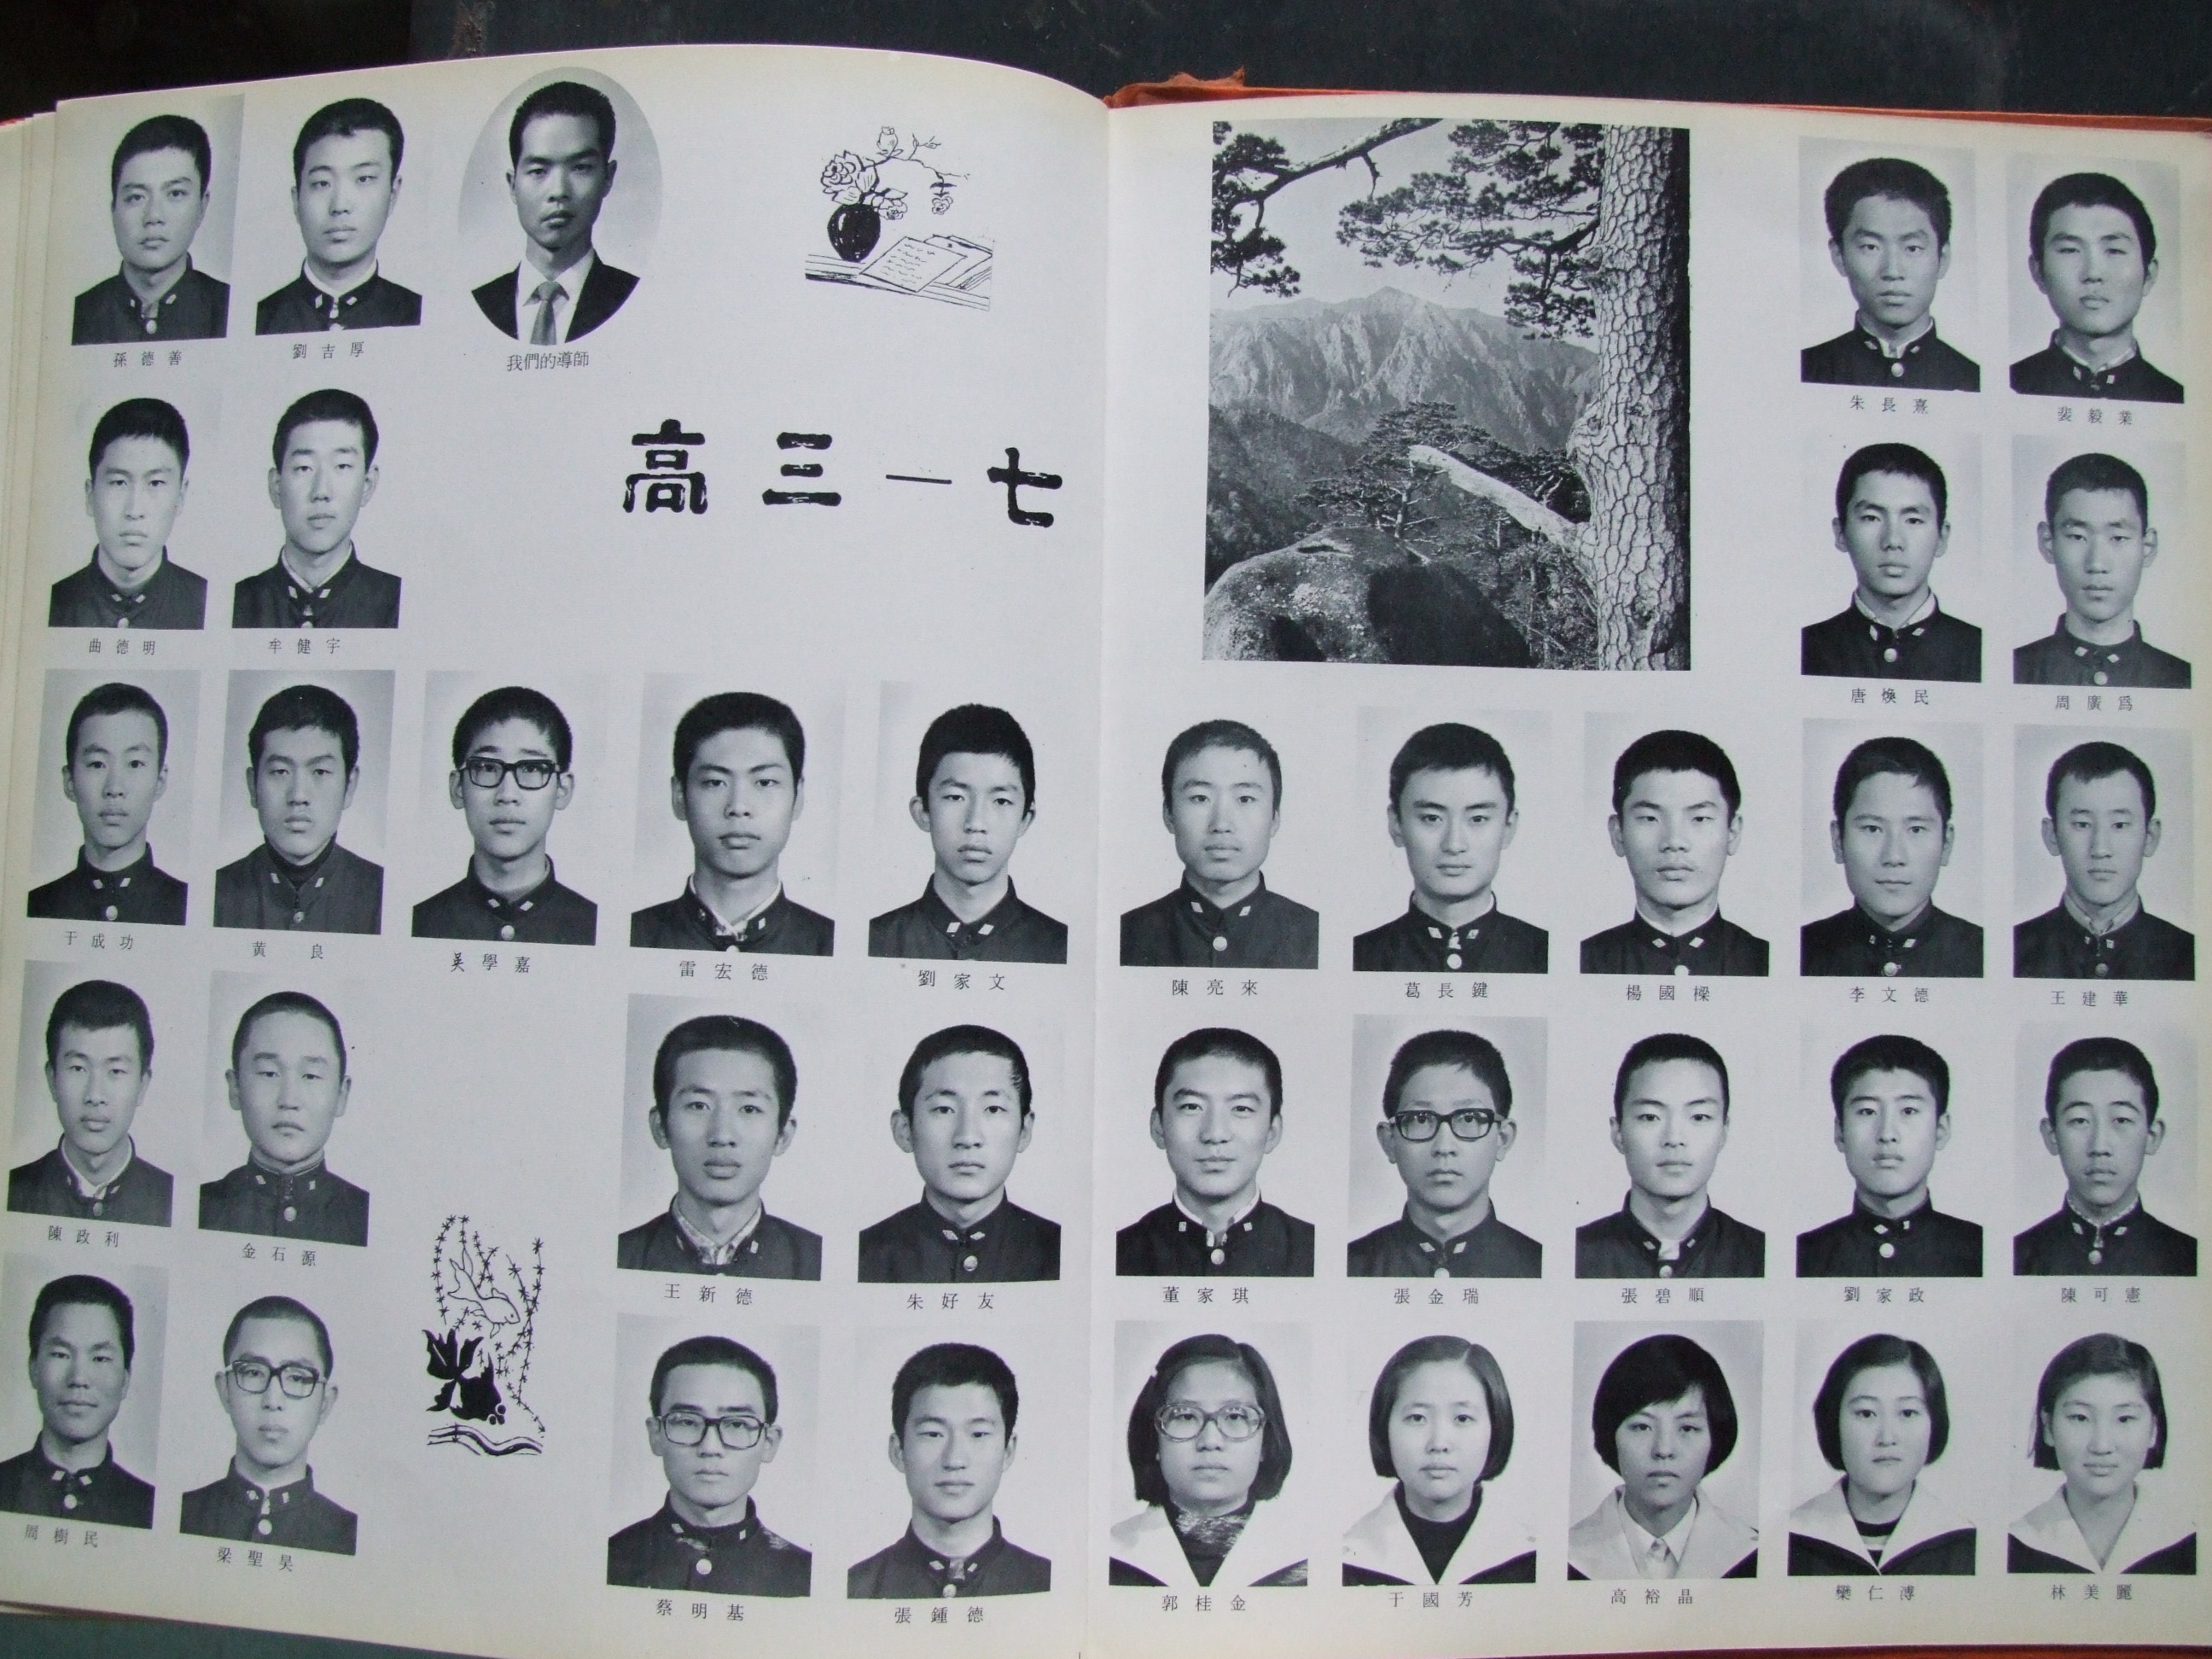 孫德善
劉吉厚
我們的導師
高三一七
曲德明
牟健宇
于成功
黃良
吳學嘉
雷宏德
劉家文
陳政利
金石源
王新德
朱好友
周樹民
梁聖昊
蔡明基
張鍾德
朱長熹
裴毅業
唐煥民
周廣為
陳亮來
葛長鍵
楊國樑
李文德
王建華
董家琪
張金瑞
張碧順
劉家政
陳可憲
郭桂金
于國芳
高裕晶
欒仁溥
林美麗